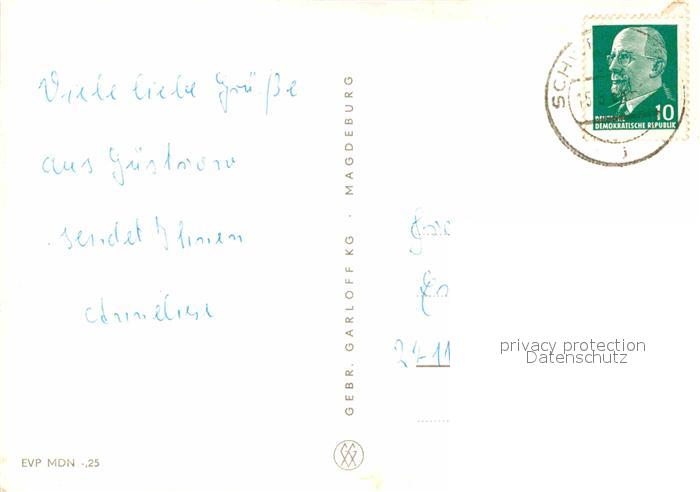 Viele liebe Grüße
aus Güstrow
sendet Ihnen
Anneliese
EVP MDN -,25
GEBR. GARLOFF KG · MAGDEBURG
SCHW
15
j
10
DEUTSCHE
DEMOKRATISCHE REPUBLIK
27 11
privacy protection
Datenschutz